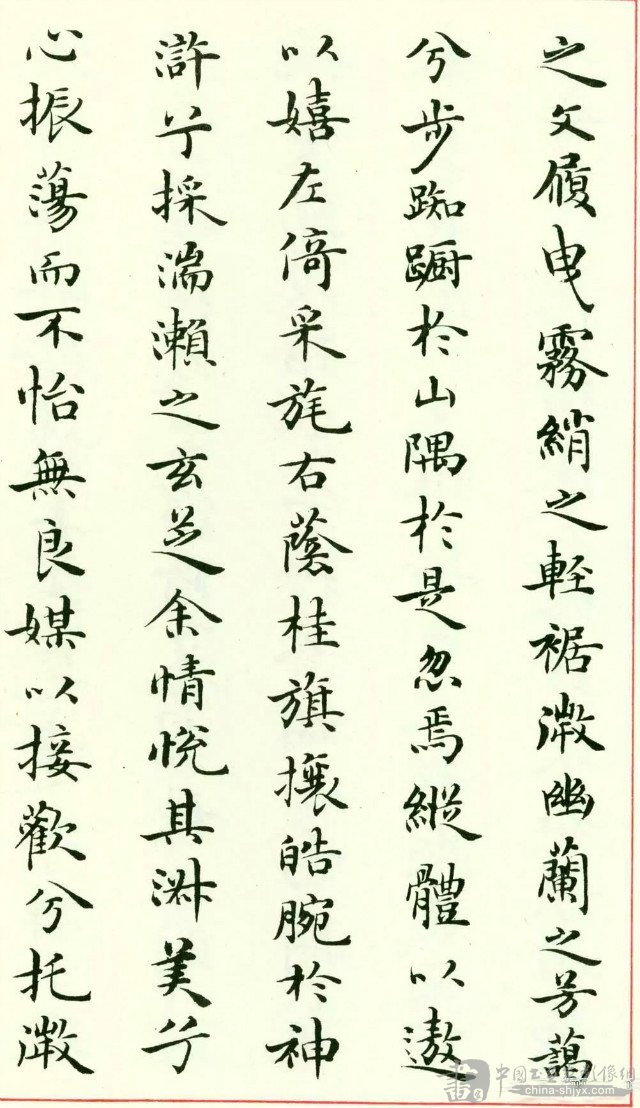 之文履曳霧綃之輕裾微幽蘭之芳藹
兮步踟躕於山隅於是忽焉縱體以遨
以嬉左倚采旄右蔭桂旗攘皓腕於神
滸兮採湍瀨之玄芝余情悅其淑美兮
心振蕩而不怡無良媒以接歡兮托微
www.china-shjyx.com